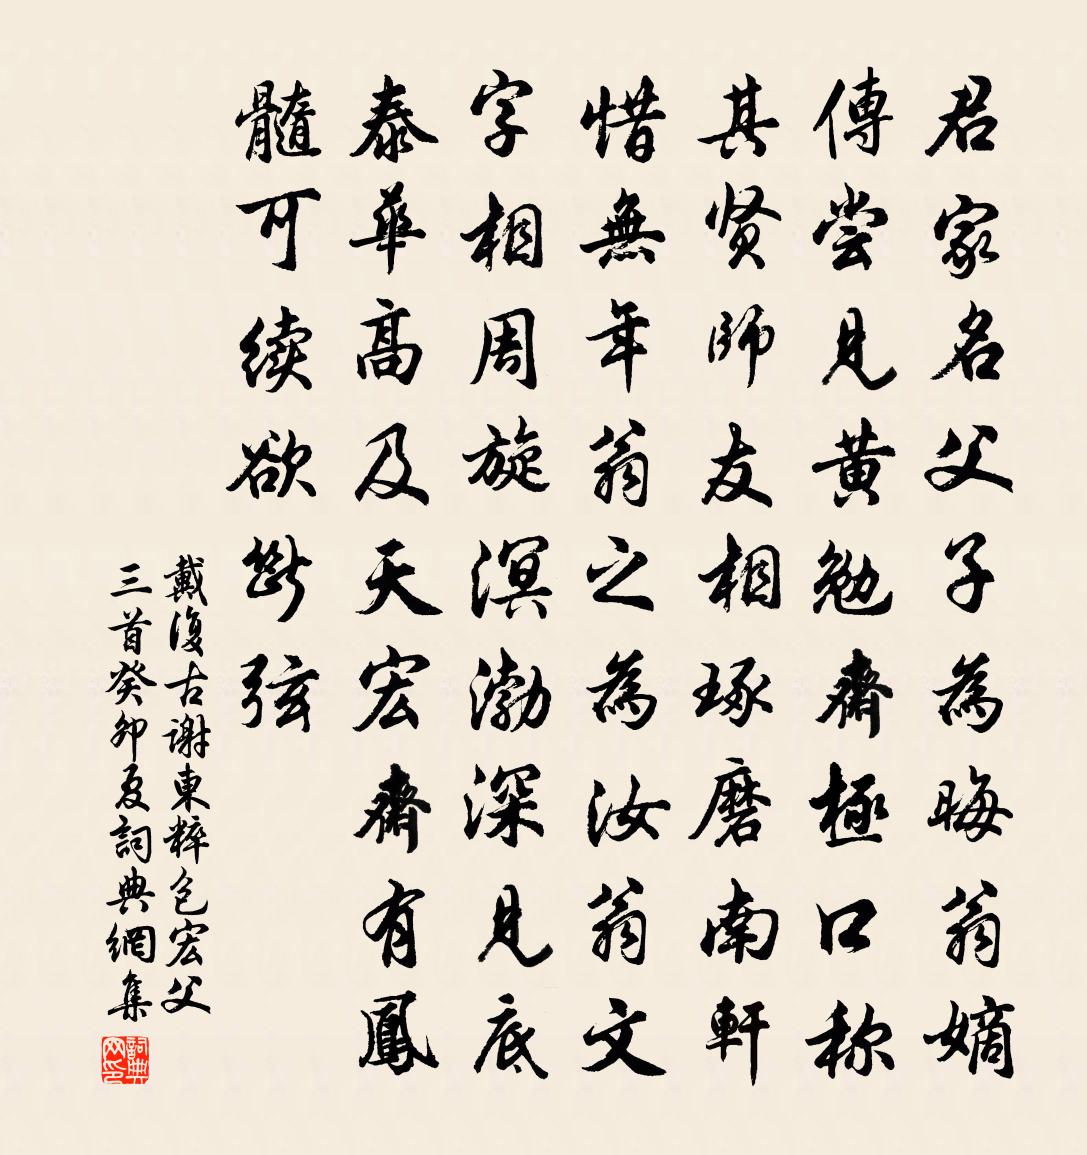 君家名父子為晦翁嫡
傳尝見黄勉齋極口称
其贤師友相琢磨南軒
惜無年翁之為汝翁文
字相周旋溟渤深見底
泰華高及天宏齋有鳳
髓可续欲断弦
戴復古谢東粹包宏父
三首癸卯夏詞典網集
詞典网印